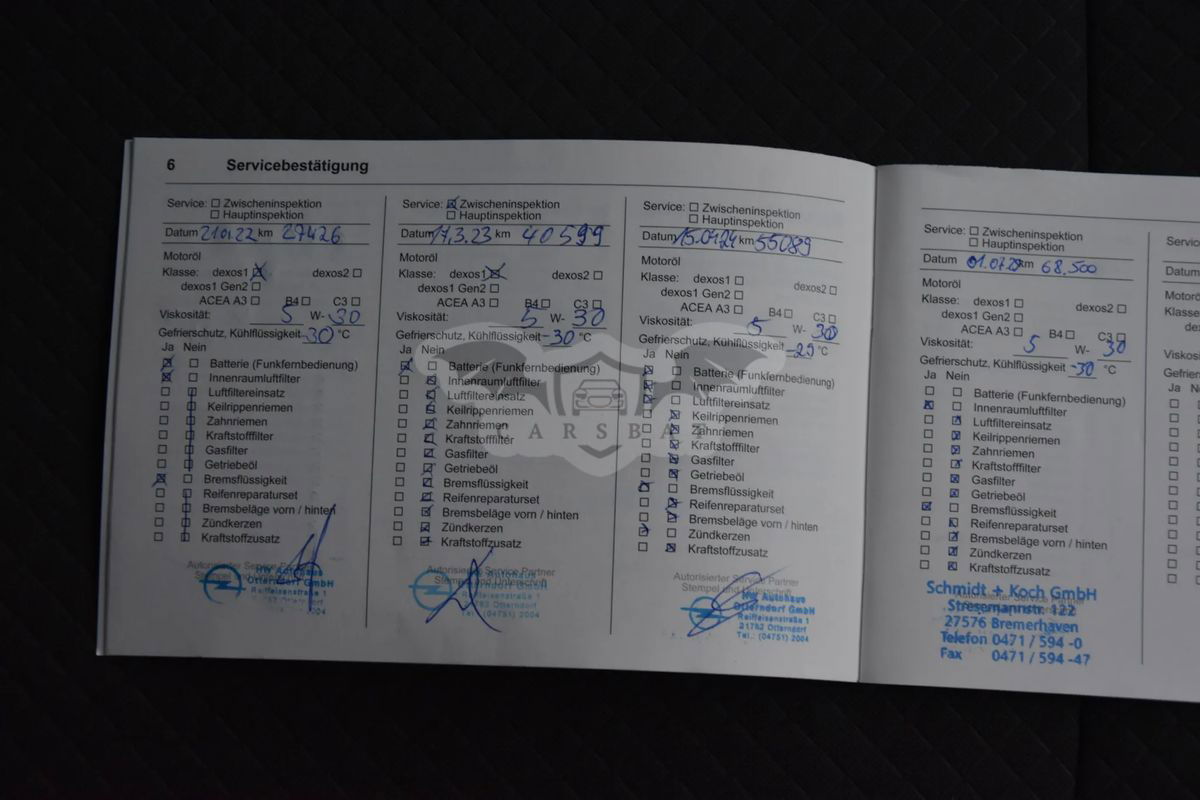 6 Servicebestätigung
Service: ☐ Zwischeninspektion
☐ Hauptinspektion
Datum 21.01.22 km 27426
Motoröl
Klasse: dexos1 ☒ dexos2 ☐
dexos1 Gen2 ☐
ACEA A3 ☐ B4 ☐ C3 ☐
Viskosität: 5 W- 30
Gefrierschutz, Kühlflüssigkeit -30 °C
Ja Nein
Batterie (Funkfernbedienung)
Innenraumluftfilter
Luftfiltereinsatz
Keilrippenriemen
Zahnriemen
Kraftstofffilter
Gasfilter
Getriebeöl
Bremsflüssigkeit
Reifenreparaturset
Bremsbeläge vorn / hinten
Zündkerzen
Kraftstoffzusatz
Autorisierter Service Partner
Stempel und
NW Autohaus
Otterndorf GmbH
Raiffeisenstraße 1
Service: ☒ Zwischeninspektion
☐ Hauptinspektion
Datum 17.3.23 km 40599
Motoröl
Klasse: dexos1 ☒ dexos2 ☐
dexos1 Gen2 ☐
ACEA A3 ☐ B4 ☐ C3 ☐
Viskosität: 5 W- 30
Gefrierschutz, Kühlflüssigkeit -30 °C
Ja Nein
Batterie (Funkfernbedienung)
Innenraumluftfilter
Luftfiltereinsatz
Keilrippenriemen
Zahnriemen
Kraftstofffilter
Gasfilter
Getriebeöl
Bremsflüssigkeit
Reifenreparaturset
Bremsbeläge vorn / hinten
Zündkerzen
Kraftstoffzusatz
Autorisierter Service Partner
Stempel und Unterschrift
Autohaus
GmbH
Raiffeisenstraße 1
21762 Otterndorf
Tel.: (04751) 2004
Service: ☐ Zwischeninspektion
☐ Hauptinspektion
Datum km 55089
Motoröl
Klasse: dexos1 ☐ dexos2 ☐
dexos1 Gen2 ☐
ACEA A3 ☐ B4 ☐ C3 ☐
Viskosität: 5 W- 30
Gefrierschutz, Kühlflüssigkeit -25 °C
Ja Nein
Batterie (Funkfernbedienung)
Innenraumluftfilter
Luftfiltereinsatz
Keilrippenriemen
Zahnriemen
Kraftstofffilter
Gasfilter
Getriebeöl
Bremsflüssigkeit
Reifenreparaturset
Bremsbeläge vorn / hinten
Zündkerzen
Kraftstoffzusatz
Autorisierter Service Partner
Stempel und Unterschrift
NW Autohaus
Otterndorf GmbH
Raiffeisenstraße 1
21762 Otterndorf
Tel.: (04751) 2004
Service: ☐ Zwischeninspektion
☐ Hauptinspektion
Datum km 68.500
Motoröl
Klasse: dexos1 ☐ dexos2 ☐
dexos1 Gen2 ☐
ACEA A3 ☐ B4 ☐ C3 ☐
Viskosität: 5 W- 30
Gefrierschutz, Kühlflüssigkeit -30 °C
Ja Nein
Batterie (Funkfernbedienung)
Innenraumluftfilter
Luftfiltereinsatz
Keilrippenriemen
Zahnriemen
Kraftstofffilter
Gasfilter
Getriebeöl
Bremsflüssigkeit
Reifenreparaturset
Bremsbeläge vorn / hinten
Zündkerzen
Kraftstoffzusatz
Schmidt + Koch GmbH
Stresemannstr. 122
27576 Bremerhaven
Telefon 0471 / 594 -0
Fax 0471 / 594 -47
Motorö
Klasse
Viskos
Gefrier
Ja
CARSBAT